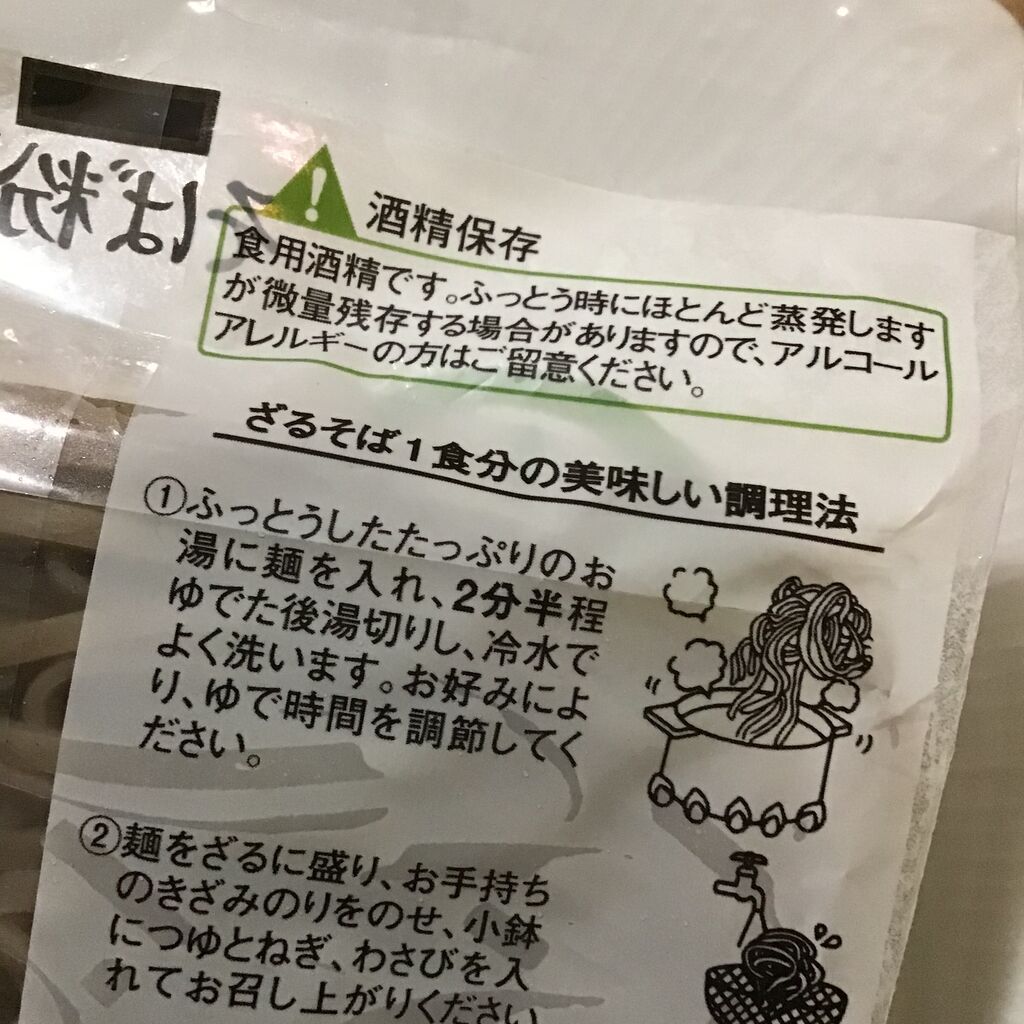 そば粉
酒精保存
食用酒精です。ふっとう時にほとんど蒸発します
が微量残存する場合がありますので、アルコール
アレルギーの方はご留意ください。
ざるそば1食分の美味しい調理法
①ふっとうしたたっぷりのお
湯に麺を入れ、2分半程
ゆでた後湯切りし、冷水で
よく洗います。お好みによ
り、ゆで時間を調節してく
ださい。
②麺をざるに盛り、お手持ち
のきざみのりをのせ、小鉢
につゆとねぎ、わさびを入
れてお召し上がりください